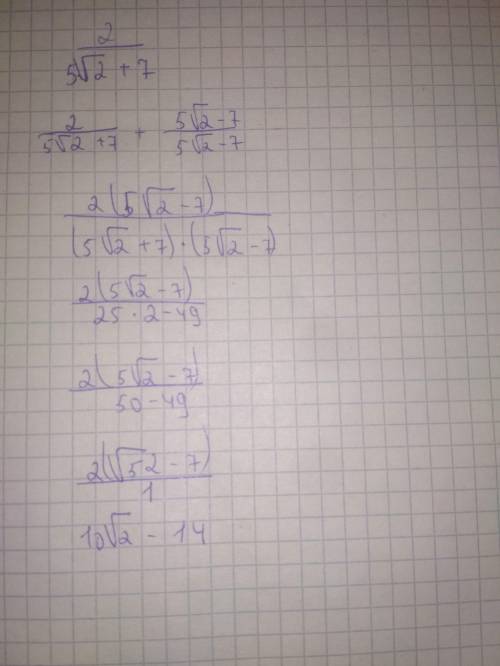 2
5√2 + 7
2 / 5√2 + 7 + 5√2 - 7 / 5√2 - 7
2(5√2 - 7)
(5√2 + 7) · (5√2 - 7)
2(5√2 - 7)
25 · 2 - 49
2(5√2 - 7)
50 - 49
2(√52 - 7)
1
10√2 - 14